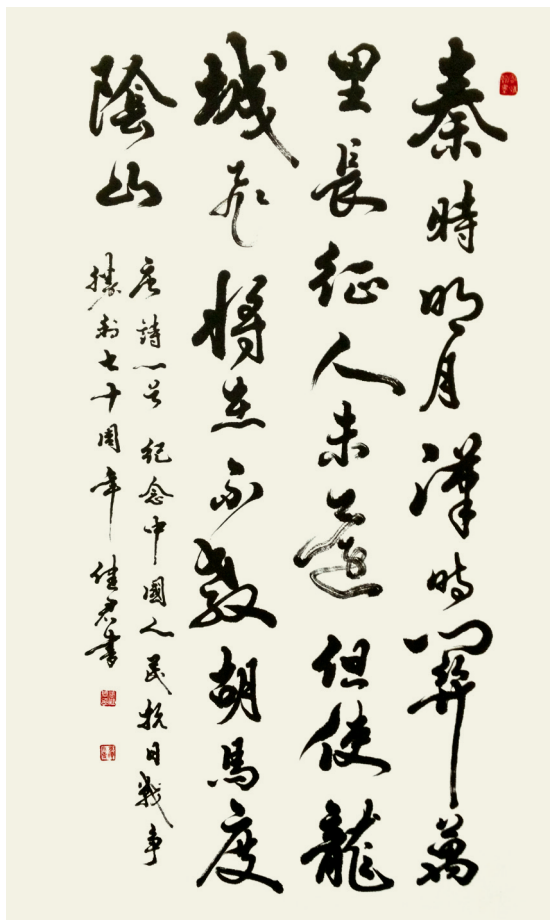 秦時明月漢時關萬
里長征人未還但使龍
城飛將在不教胡馬度
陰山
唐詩一首 紀念中國人民抗日戰爭
勝利七十周年 佳君書